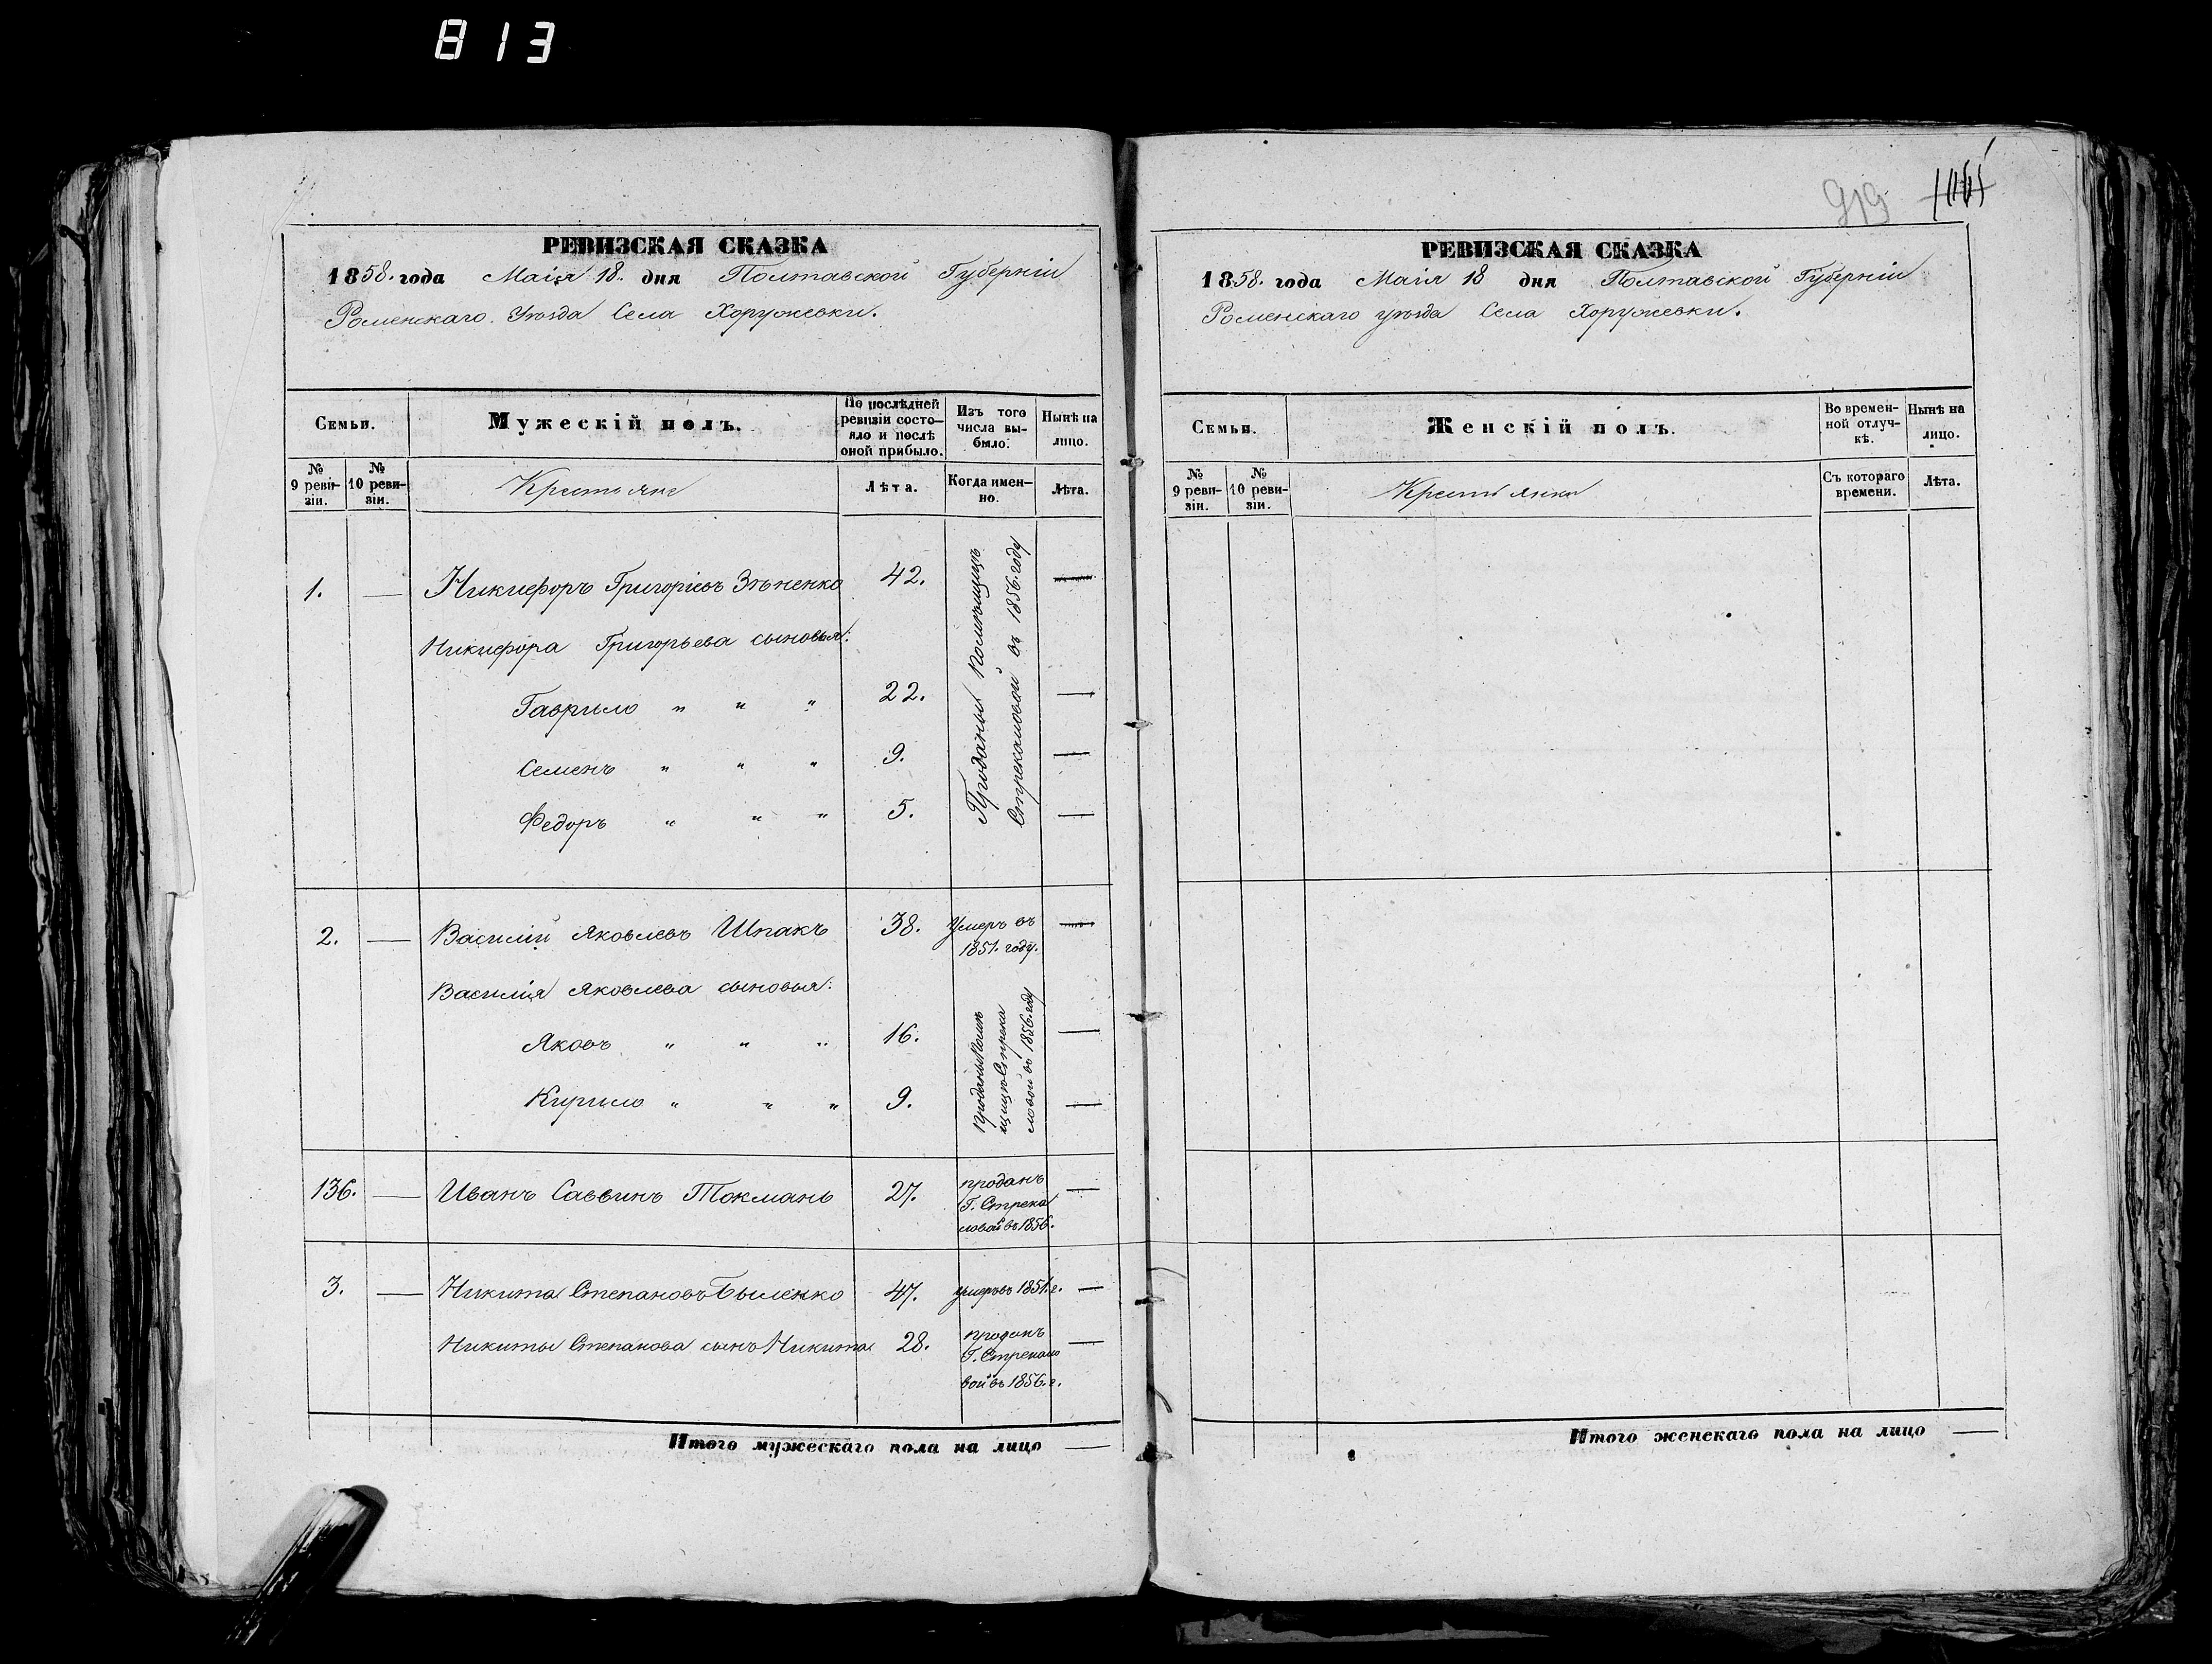 813
919
РЕВИЗСКАЯ СКАЗКА
1858. года Маія 18. дня Полтавской Губерніи
Роменскаго Уѣзда Села Хоружевки.
Семьи.
Мужескій полъ.
По послѣдней ревизіи состояло и послѣ оной прибыло.
Изъ того числа выбыло.
Нынѣ на лицо.
№ 9 ревизіи.
№ 10 ревизіи.
Крестьяне
Лѣта.
Когда именно.
Лѣта.
1. — Никифоръ Григоріевъ Зѣненко 42. —
Никифора Григорьева сыновья:
Гаврило " " " 22. —
Семенъ " " " 9. —
Федоръ " " " 5. —
Проданы Помѣщицѣ
Стрекаловой въ 1856. году
2. — Василій Яковлевъ Шпакъ 38. Умеръ въ —
1851. году.
Василія Яковлева сыновья:
Яковъ " " " 16. —
Кирило " " " 9. —
Проданы Помѣ
щицѣ Стрека
ловой въ 1856. году
136. — Иванъ Саввинъ Токмань 27. проданъ —
Г. Стрека
ловой въ 1856.
3. — Никита Степановъ Быленко 47. умеръ въ 1851. г. —
Никиты Степанова сынъ Никита 28. проданъ —
Г. Стрекало
вой въ 1856. г.
Итого мужескаго пола на лицо —
РЕВИЗСКАЯ СКАЗКА
1858. года Маія 18 дня Полтавской Губерніи
Роменскаго уѣзда Села Хоружевки.
Семьи.
Женскій полъ.
Во временной отлучкѣ.
Нынѣ на лицо.
№ 9 ревизіи.
№ 10 ревизіи.
Крестьянки
Съ котораго времени.
Лѣта.
Итого женскаго пола на лицо —